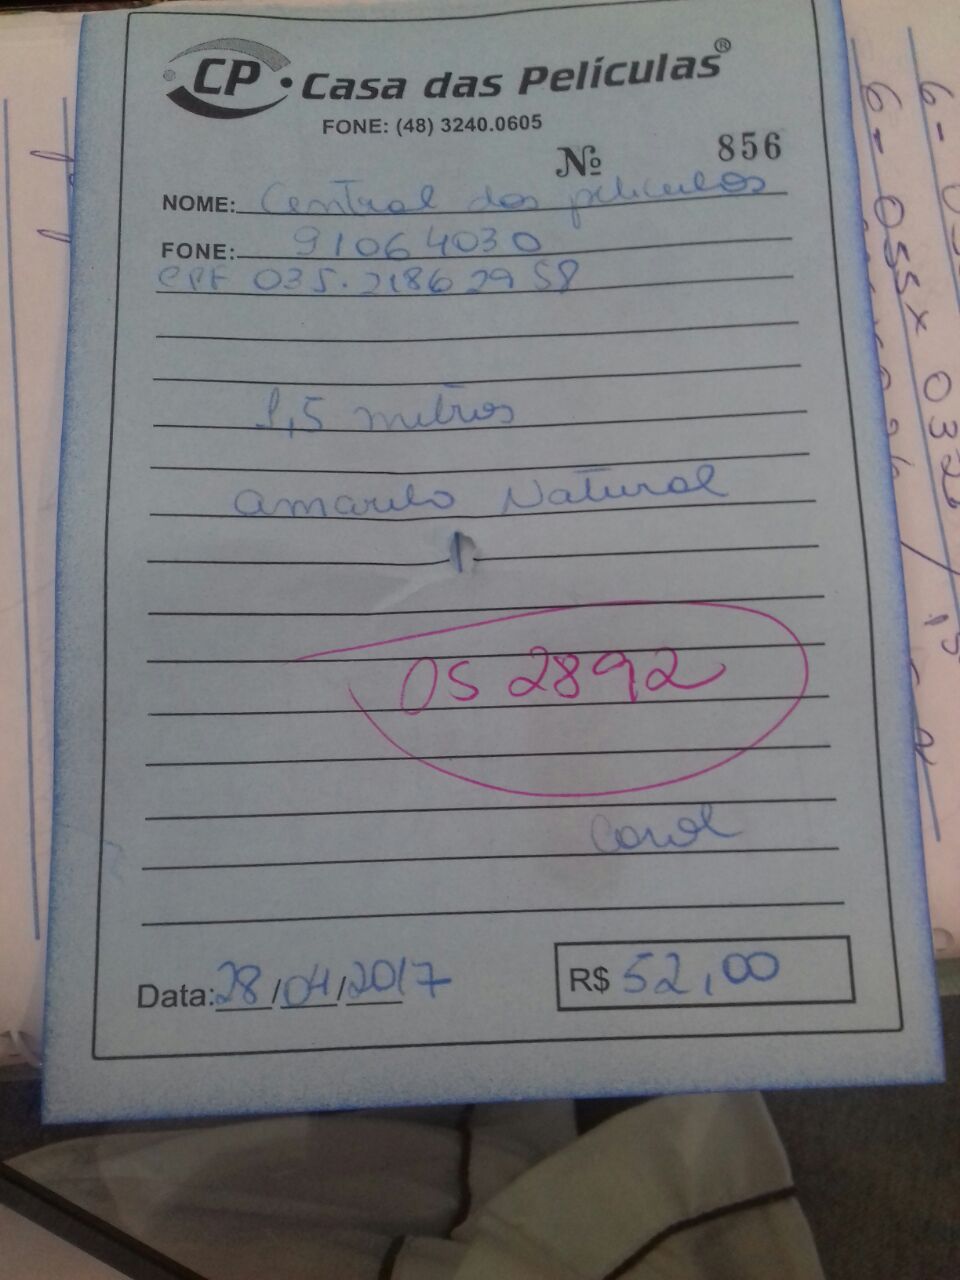 CP Casa das Películas®
FONE: (48) 3240.0605
Nº 856
NOME: Central das películas
FONE: 91064030
CPF 035.218629 58
1,5 metros
amarelo Natural
OS 2892
Carol
Data: 28/04/2017
R$ 52,00
6- 055x 032